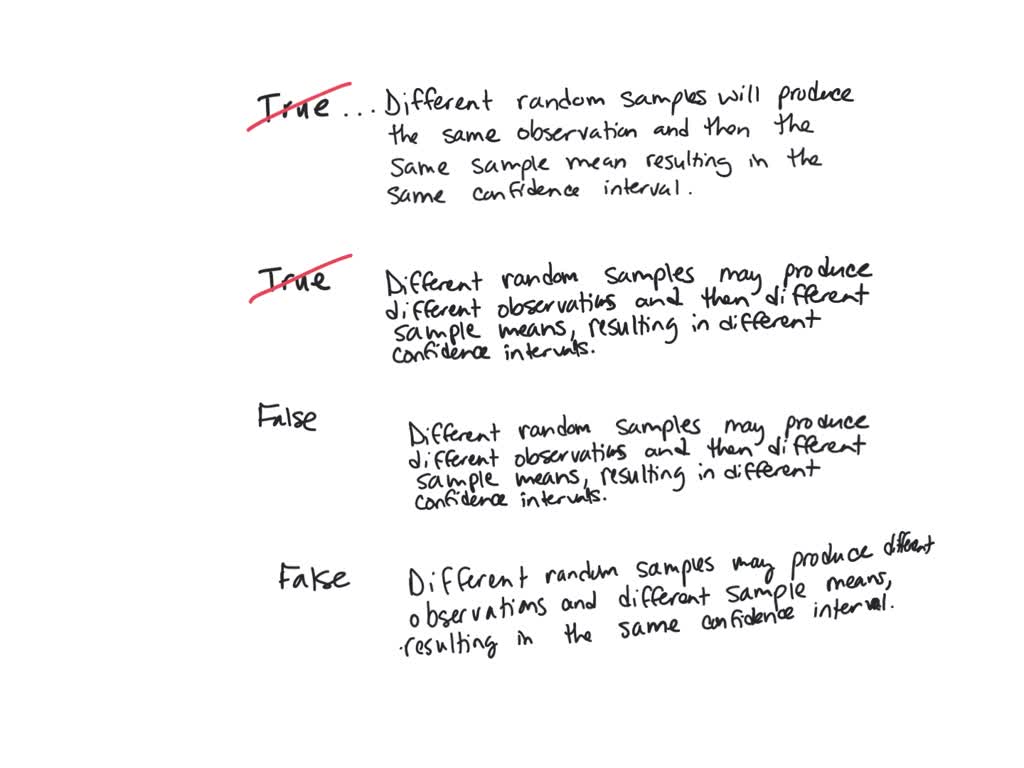 True ... Different random samples will produce
the same observation and then the
same sample mean resulting in the
same confidence interval.
True Different random samples may produce
different observations and then different
sample means, resulting in different
confidence intervals.
False Different random samples may produce
different observations and then different
sample means, resulting in different
confidence intervals.
False Different random samples may produce different
observations and different sample means,
resulting in the same confidence interval.